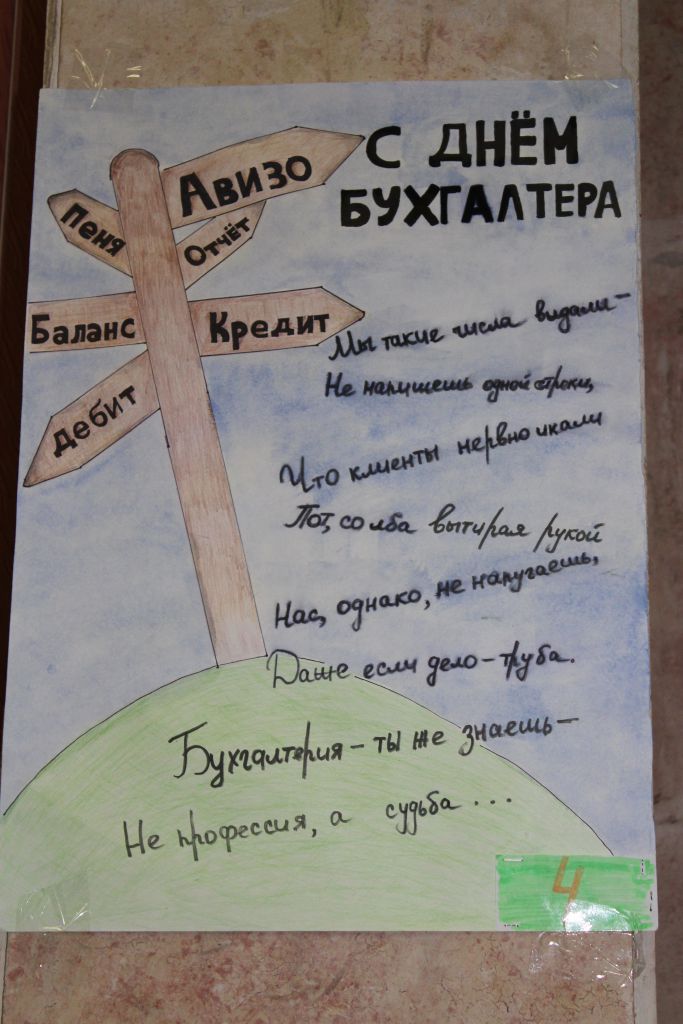 С ДНЁМ
БУХГАЛТЕРА
Авизо
Пеня
Отчёт
Баланс
Кредит
Дебит
Мы такие числа видали –
Не напишешь одной строки,
Что клиенты нервно икали
Пот, со лба вытирая рукой
Нас, однако, не напугаешь,
Даже если дело – труба.
Бухгалтерия – ты же знаешь –
Не профессия, а судьба ...
4